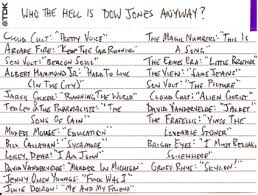 TDK
WHO THE HELL IS DOW JONES ANYWAY?
CLOUD CULT: "PRETTY VOICE"
ARCADE FIRE: "KEEP THE CAR RUNNING"
SON VOLT: "BEACON SOUL"
ALBERT HAMMOND JR: "HARD TO LIVE
(IN THE CITY)"
JARVIS COCKER: "RUNNING THE WORLD"
TED LEO & THE PHARMACISTS: "THE
SONS OF CAIN"
MODEST MOUSE: "EDUCATION"
BILL CALLAHAN: "SYCAMORE"
LONEY, DEAR: "I AM JOHN"
DAVID VANDERVELDE: "MURDER IN MICHIGAN"
JENNY OWEN YOUNGS: "FUCK WAS I"
JULIE DOIRON: "ME AND MY FRIEND"
THE MAGIC NUMBERS: "THIS IS
A SONG"
THE EAMES ERA: "LITTLE BROTHER"
THE VIEW: "SAME JEANS"
SON VOLT: "THE PICTURE"
CLOUD CULT: "ALIEN CHRIST"
DAVID VANDERVELDE: "JACKET"
THE FRATELLIS: "VINCE THE
LOVEABLE STONER"
BRIGHT EYES: "I MUST BELONG
SOMEWHERE"
GRUFF RHYS: "